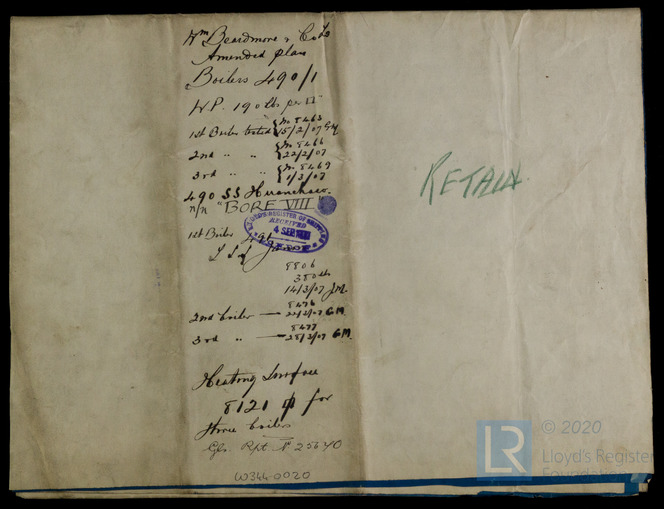 Wm Beardmore & Co Ld
Amended plan
Boilers 490/1
W.P. 190 lbs per □"
1st Boiler tested { No 8463 15/2/07 GM
2nd " " { No 8466 22/2/07
3rd " " { No 8469 1/3/07
490 SS
n/n "BORE VIII"
LLOYD'S REGISTER OF SHIPPING
RECEIVED
4 SEP
1st Boiler 491
8806
380 lbs
14/3/07 J.M.
8476
2nd boiler — 22/3/07 G.M.
8477
3rd " — 28/3/07 G.M.
Heating Surface
8121 for
three boilers
Gls. Rpt. No 25640
W344-0020
RETAIN.
LR
© 2020
Lloyd's Register
Foundation